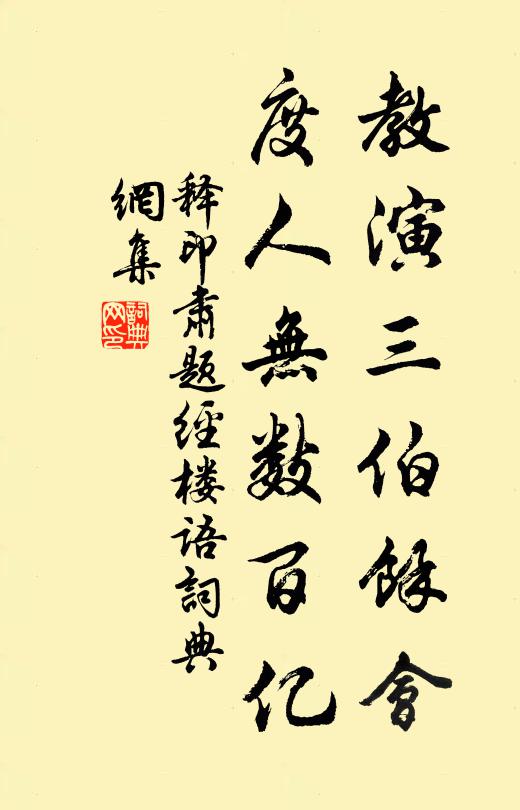 教演三伯餘會
度人無数百亿
释印肃题經楼语詞典
網集
詞典
网印